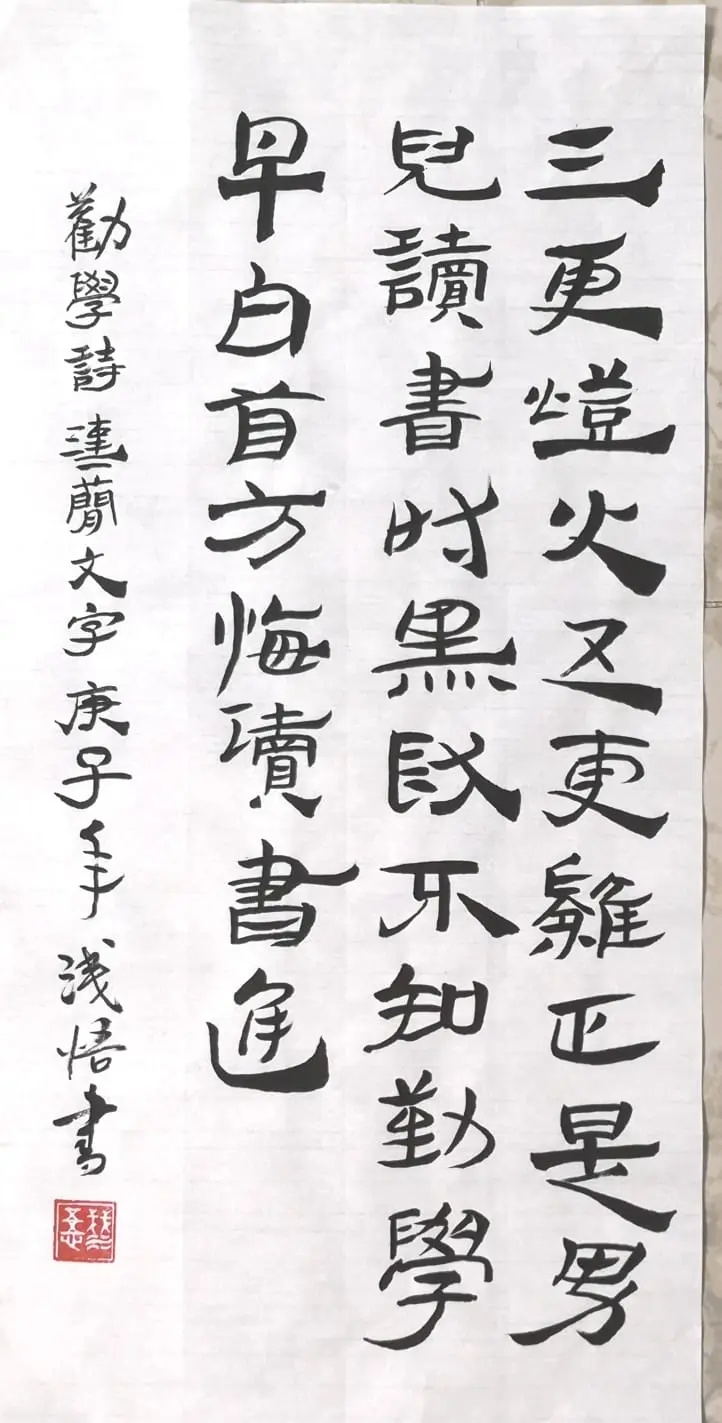 三更燈火五更雞正是男
兒讀書时黑髮不知勤學
早白首方悔讀書遲
勸學詩漢簡文字庚子年浅悟書